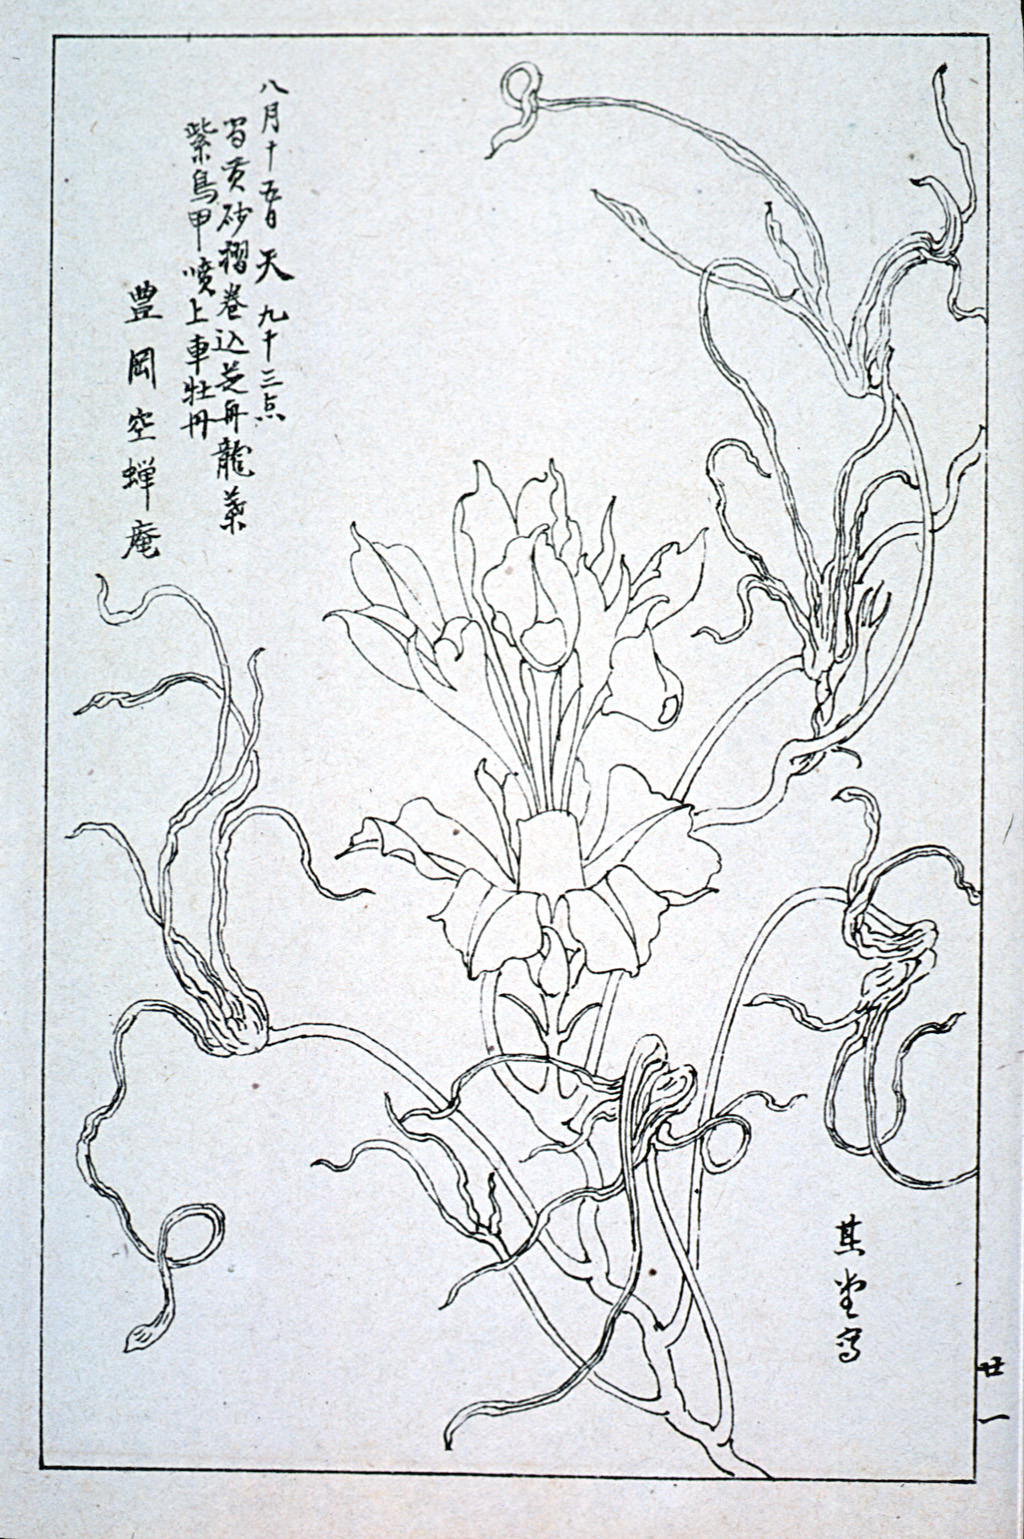 八月十五日 天 九十三点
黄砂摺巻込芝舟龍葉
紫鳥甲噴上車牡丹
豊岡空蝉庵
其堂写
廿一